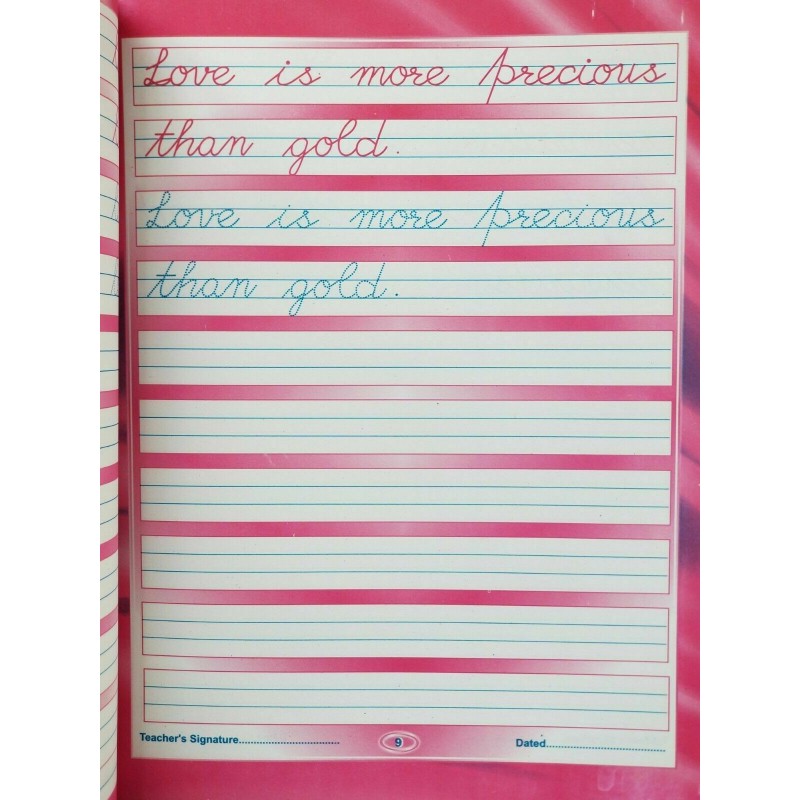 Love is more precious
than gold.
Love is more precious
than gold.
Teacher's Signature.................................. 9 Dated........................................